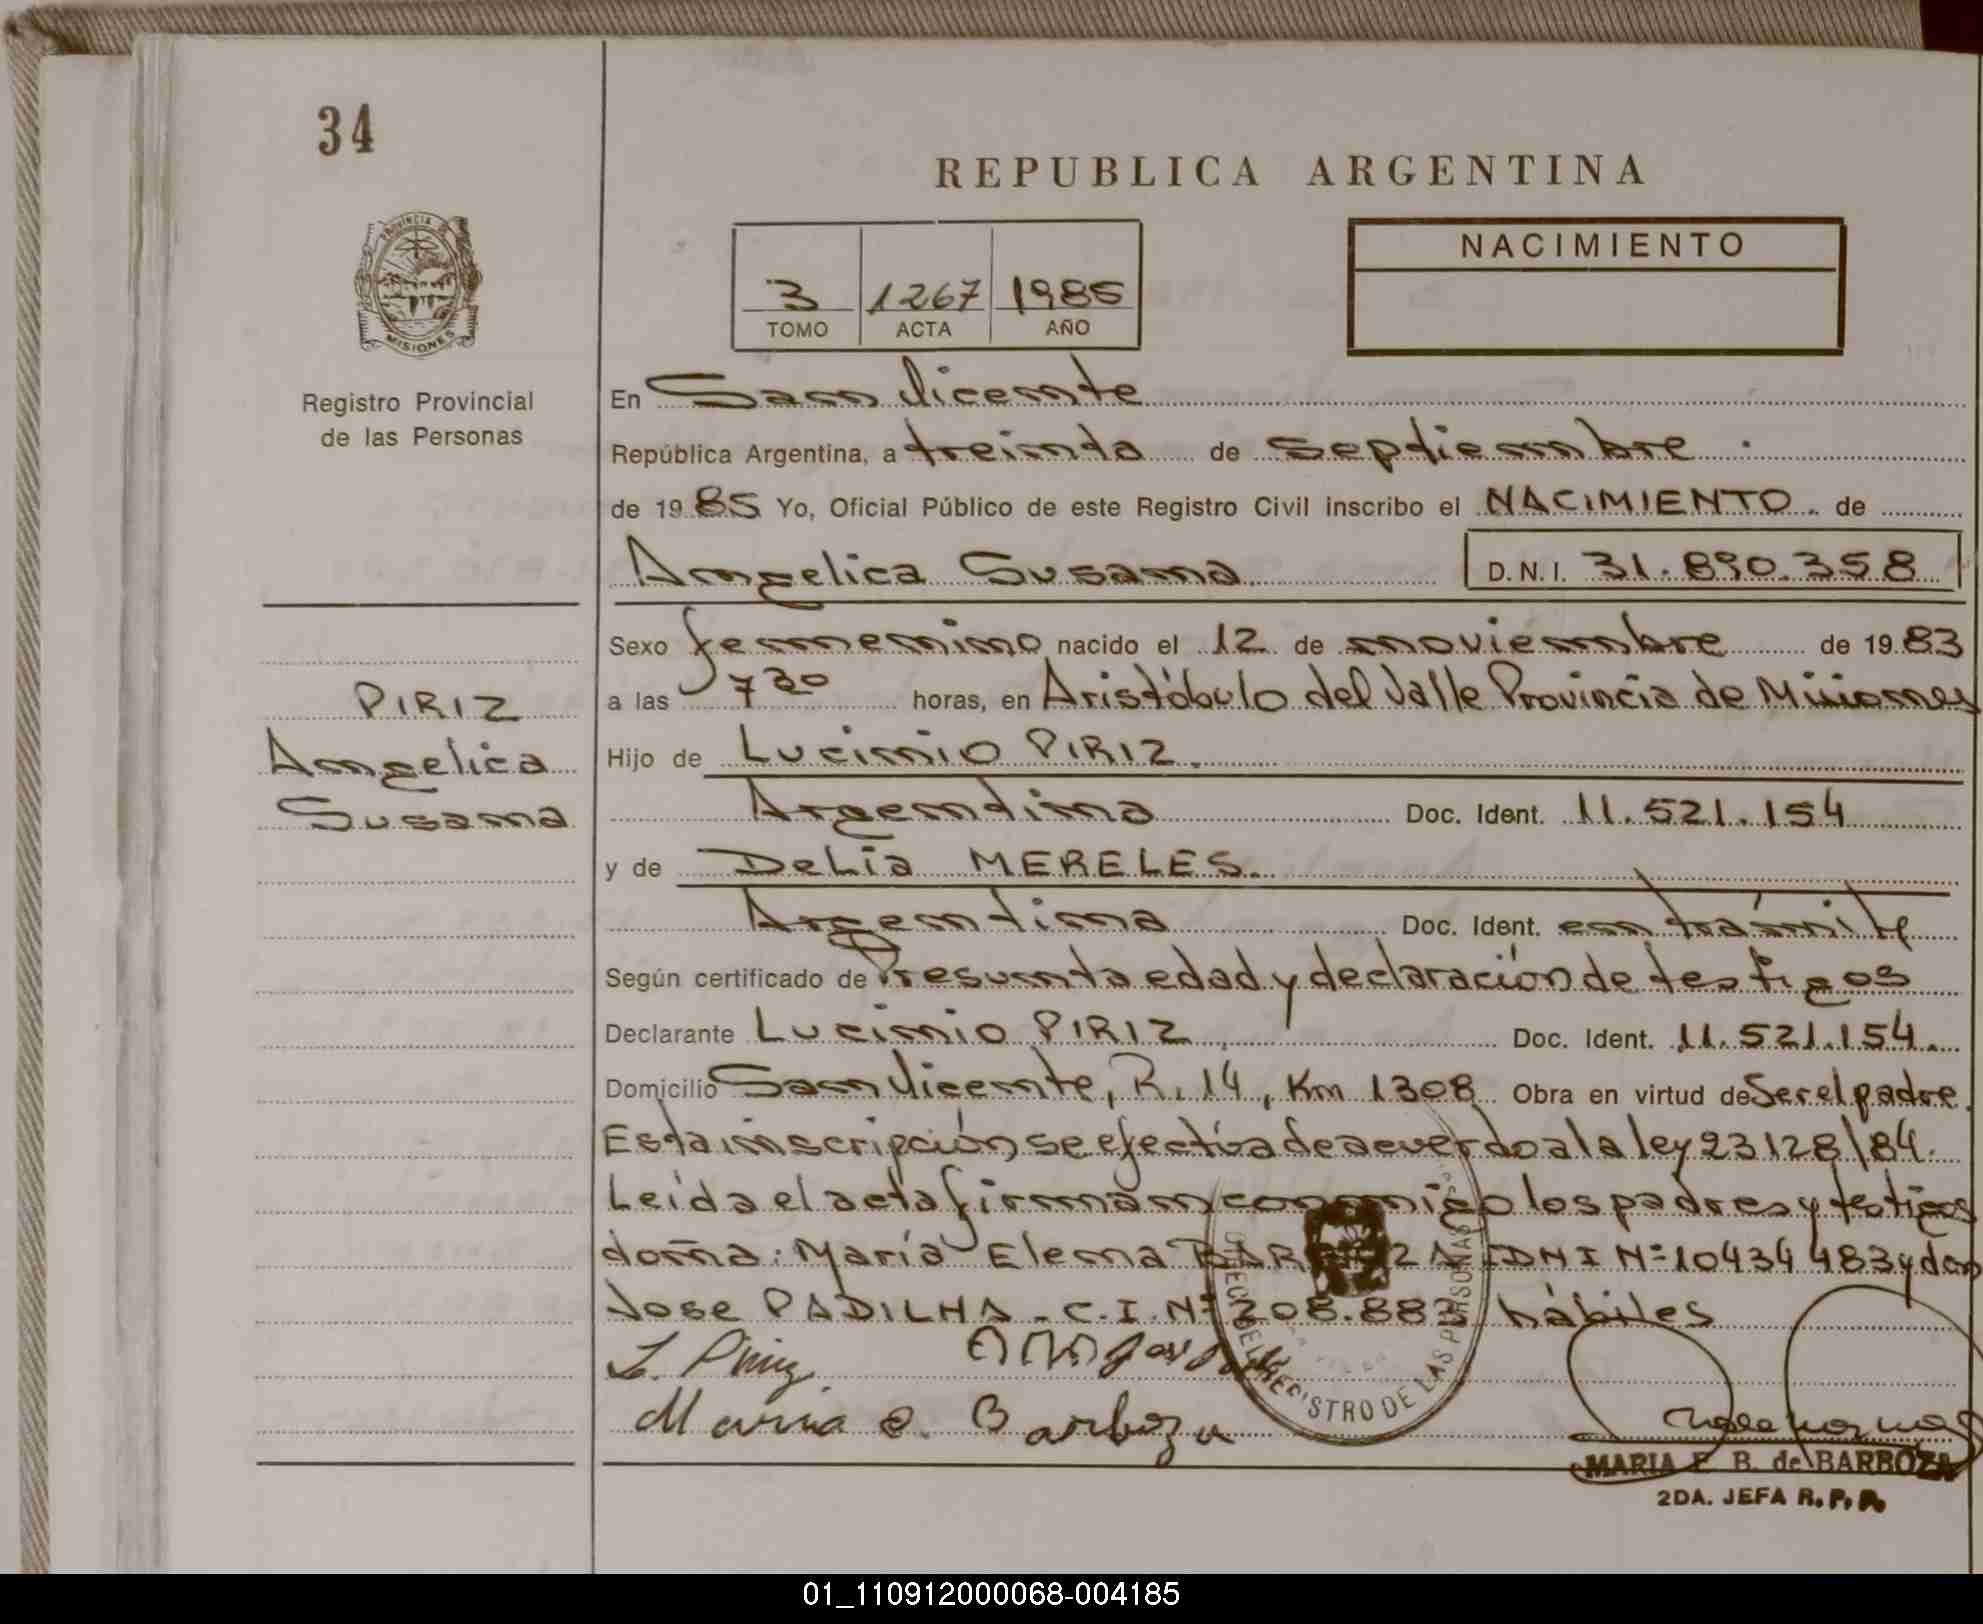 34
REPUBLICA ARGENTINA
PROVINCIA
MISIONES
Registro Provincial
de las Personas
3 1267 1985
TOMO ACTA AÑO
NACIMIENTO
En San Vicente
República Argentina, a treinta de septiembre.
de 1985 Yo, Oficial Público de este Registro Civil inscribo el NACIMIENTO. de
Angelica Susana D.N.I. 31.890.358
PIRIZ
Angelica
Susana
Sexo femenino nacido el 12 de noviembre de 1983
a las 7 30 horas, en Aristóbulo del Valle Provincia de Misiones
Hijo de Lucinio PIRIZ.
Argentina Doc. Ident. 11.521.154
y de Delia MERELES.
Argentina Doc. Ident. en trámite
Según certificado de Presunta edad y declaración de testigos
Declarante Lucinio PIRIZ Doc. Ident. 11.521.154.
Domicilio San Vicente, R. 14, Km 1308 Obra en virtud de Ser el padre.
Esta inscripción se efectúa de acuerdo a la ley 23128/84.
Leída el acta firman conmigo los padres y testigos
doña: María Elena BARBOZA DNI Nº 10434483 y don
Jose PADILHA - C.I. Nº 208.883 hábiles
L. Piriz
Maria e. Barboza
REGISTRO DE LAS PERSONAS
MARIA E. B. de BARBOZA
2DA. JEFA R.P.P.
01_110912000068-004185